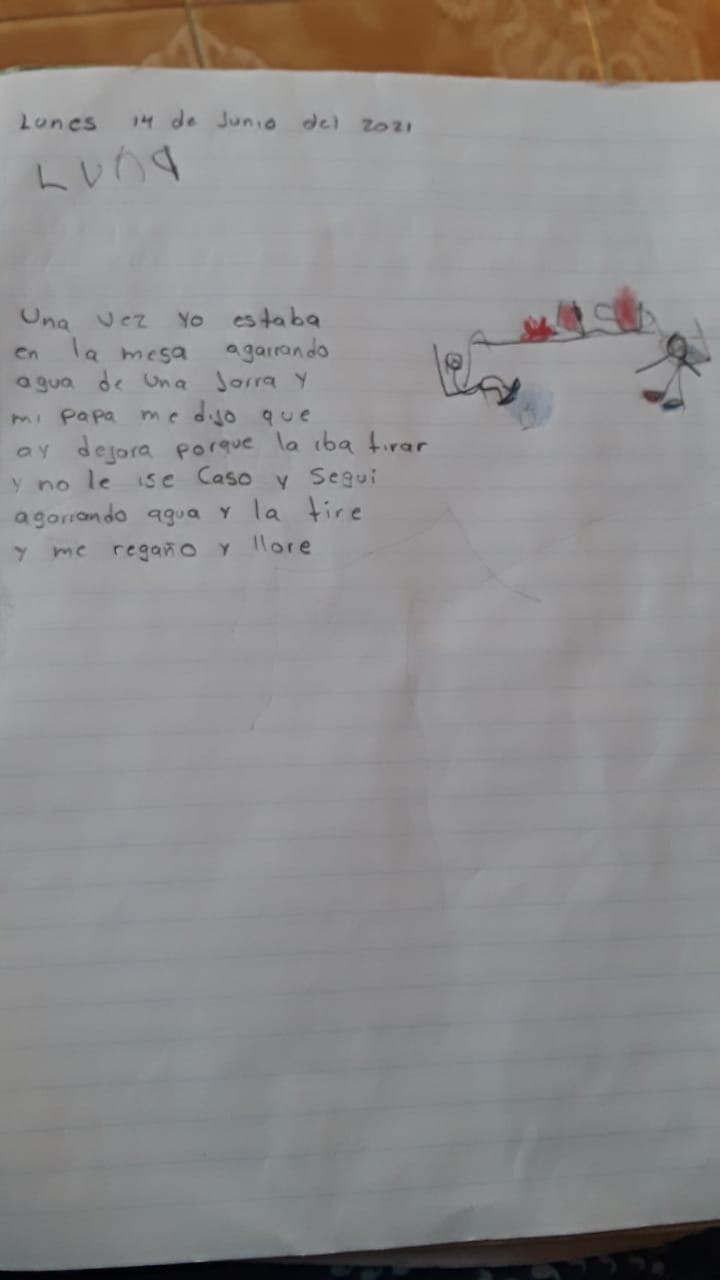 Lunes 14 de Junio del 2021
Luna
Una vez yo estaba
en la mesa agarrando
agua de una Jorra y
mi papa me dijo que
ay dejara porque la iba tirar
y no le ise Caso y Segui
agarrando agua y la tire
y me regaño y llore